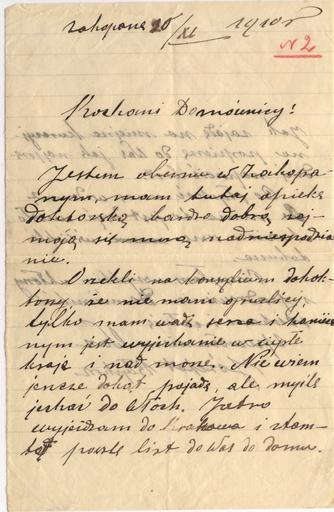 Zakopane 20/XI 1910 r
N 2
Kochani Domównicy!
Jestem obecnie w Zakopa-
nym, mam tutaj opiekę
doktorską bardzo dobrą zaj-
mują się mną nadniespodzia
nie.
Orzekli na konsylium dok-
torzy że nie mam gruźlicy,
tylko mam wadę serca i koniecz
nym jest wyjechanie w ciepłe
kraje i nad morze. Nie wiem
jeszcze dokąt pojadę, ale myślę
jechać do Włoch. Jutro
wyjeżdzam do Krakowa i stam-
tąt poszlę list do Was do domu.